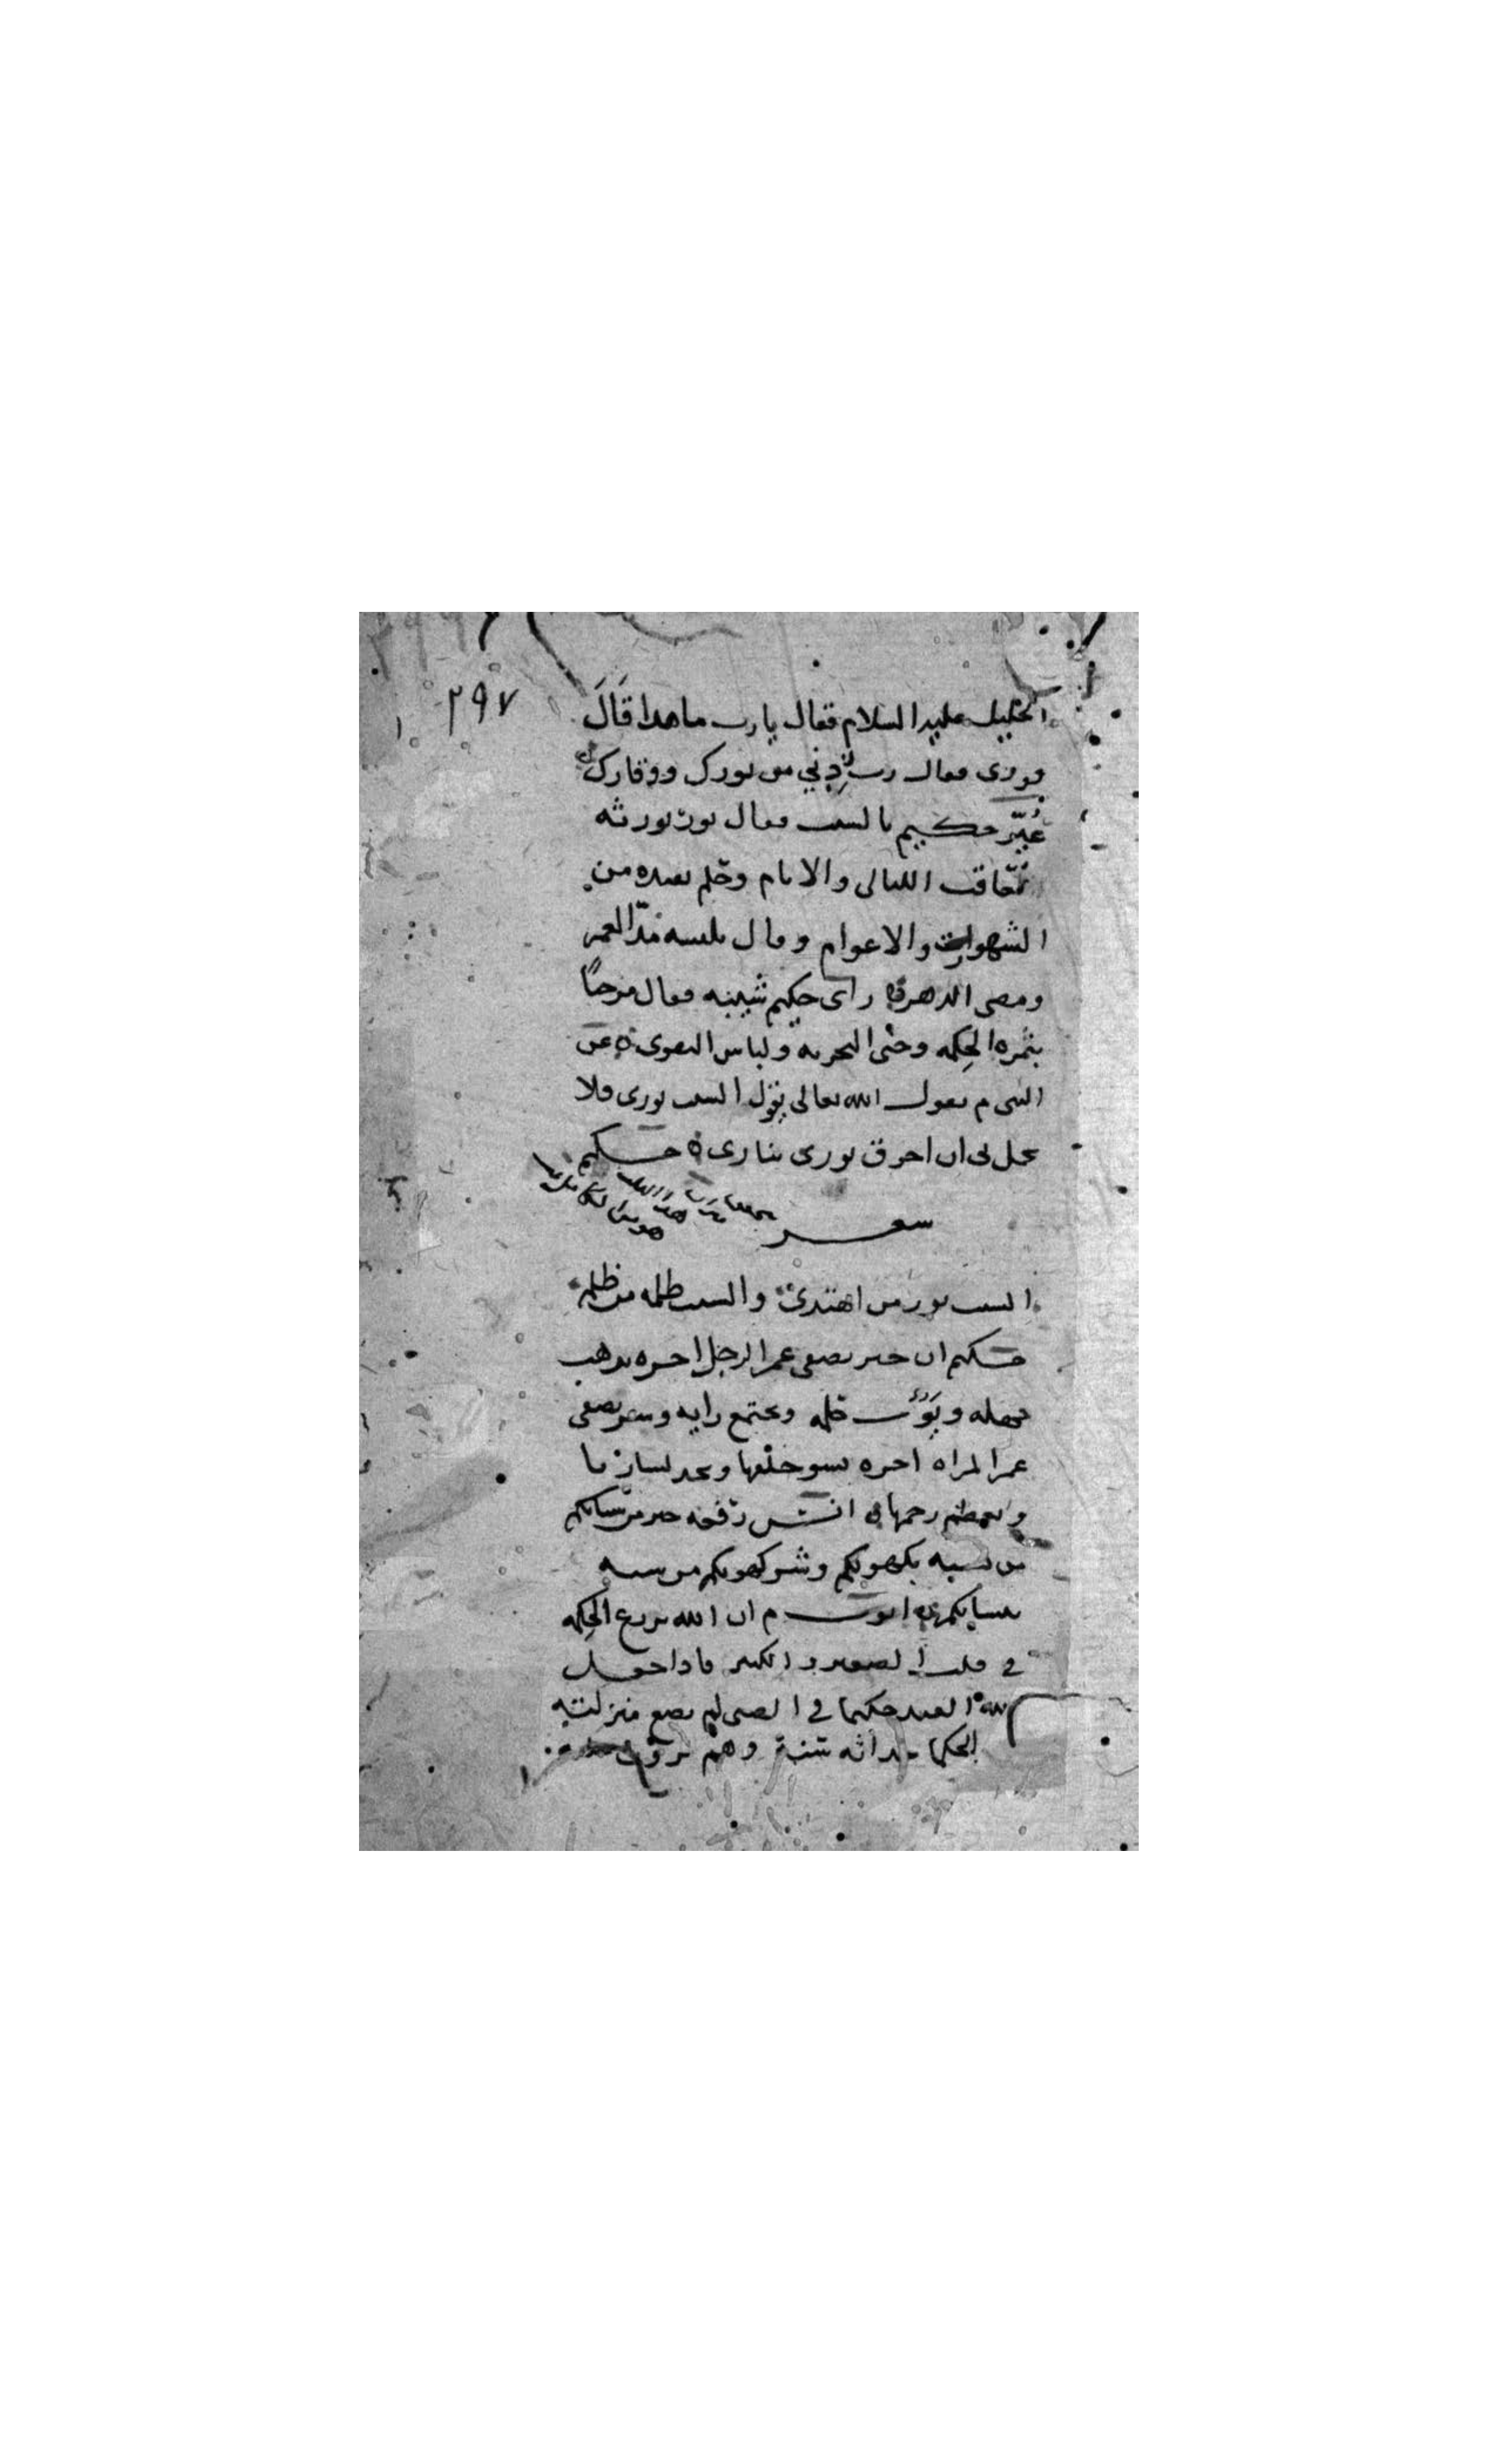 ٢٩٧
الخليل عليه السلام فقال يارب ما هدا قَالَ
نورى فقال رب زِدْني من نورك ووقارك
عُيّر حكيم بالشيب فقال نور نورثه
تعاقب الليالى والايام وحلم نفيده من
الشهور والاعوام وقال نلبسه مدّ العمر
ومضى الدهر ه راى حكيم شيبته فقال مرحبًا
بثمره الحِكمه وجنى التجربه ولباس التقوى ه عن
النبى م يقول الله تعالى الشيب نورى فلا
يجمل بى ان احرق نورى بنارى ه حكيم
شعر
الشيب نور من اهتدى والشيب ظلمه من ظلم
حكيم ان خير نصفى عمر الرجل اخره يذهب
جهله و حلمه ويجتمع رايه وشر نصفى
عمر المراه اخره يسو خلقها ويحد لسانها
ويعقم رحمها ه انس رفعه خير شبابكم
من تشبه بكهولكم وشر كهولكم من تشبه
بشبابكم ه م ان الله يزرع الحِكمه
في قلب الصغير و الكبير فاذا جعل
الله العبد حكيما في الصبى لم يضع منزلته
الحكما حداثه سنه وهم يرون